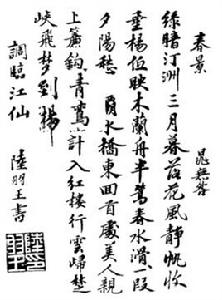 春景 晁無咎
綠暗汀洲三月暮落花風靜帆收
垂楊低映木蘭舟半篙春水滑一段
夕陽愁 水橋東回首處美人親
上簾鈎青鸞計入紅樓行雲歸楚
峽飛梦到
調臨江仙 陸王書